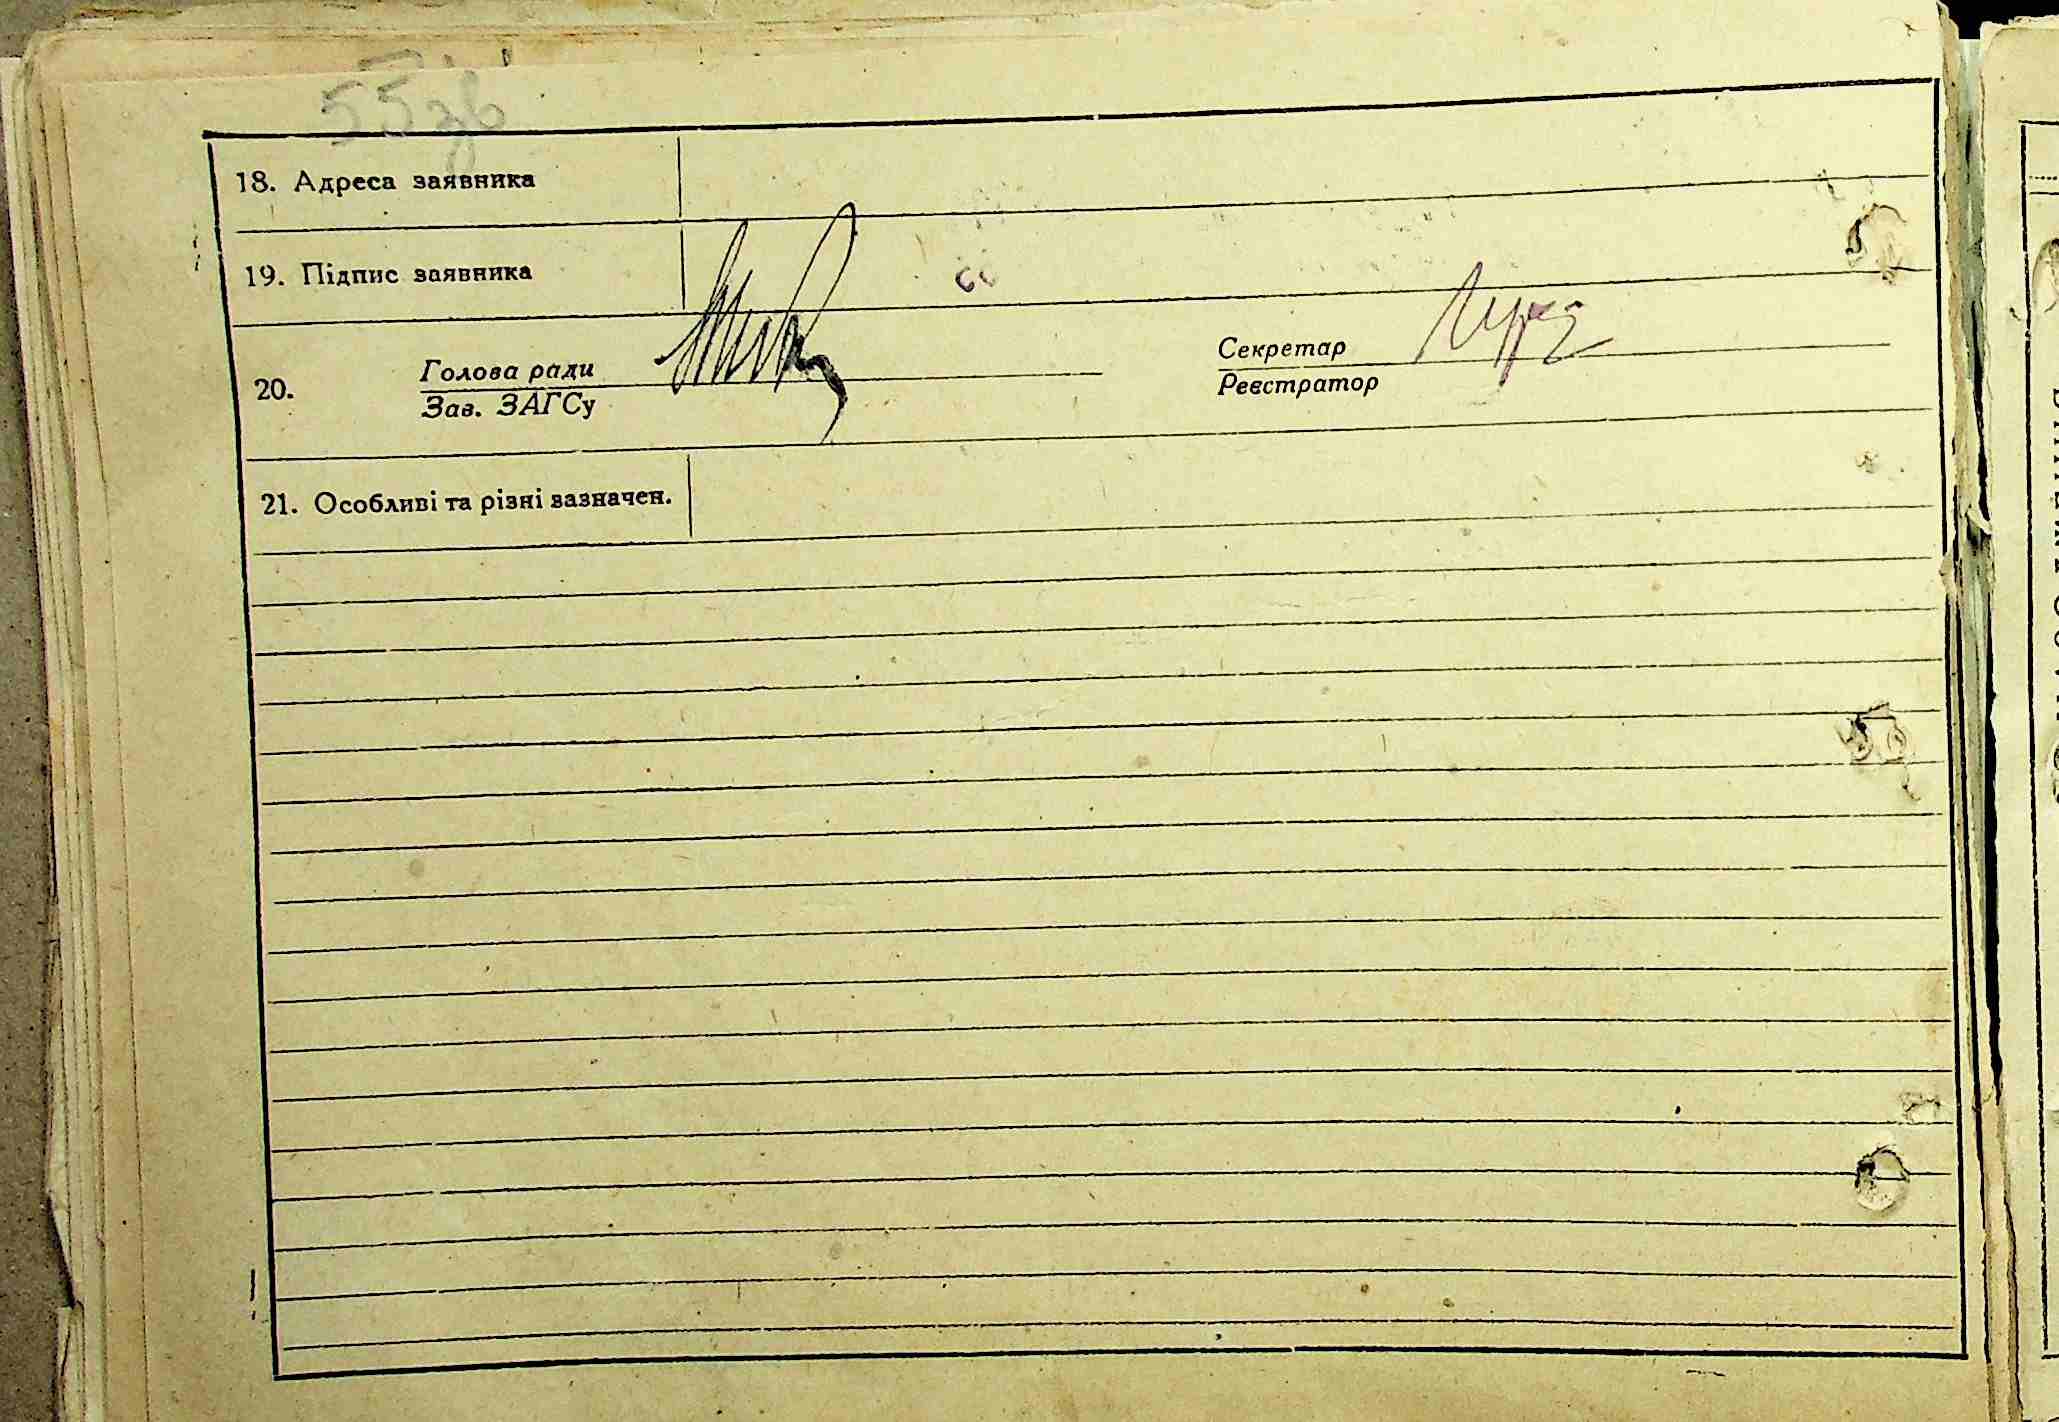 55зв
18. Адреса заявника
19. Підпис заявника
20. Голова ради
Зав. ЗАГСу
Секретар
Реєстратор
21. Особливі та різні зазначен.